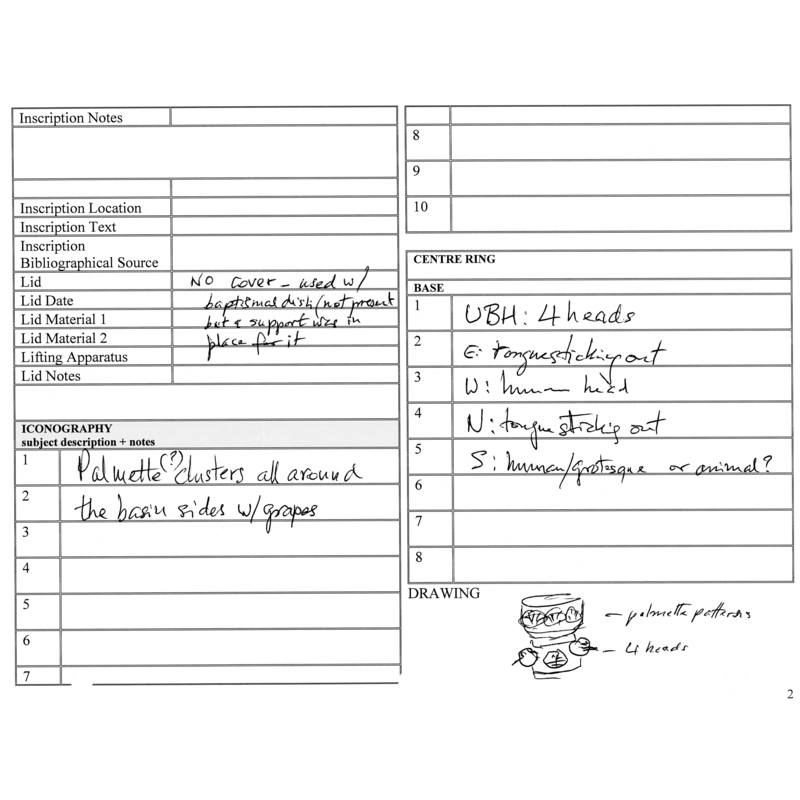 Inscription Notes
Inscription Location
Inscription Text
Inscription
Bibliographical Source
Lid NO cover - used w/
Lid Date baptismal dish (not present
Lid Material 1 but a support was in
Lid Material 2 place for it
Lifting Apparatus
Lid Notes
ICONOGRAPHY
subject description + notes
1 Palmette(?) clusters all around
2 the basin sides w/ grapes
3
4
5
6
7
8
9
10
CENTRE RING
BASE
1 UBH: 4 heads
2 E: tongue sticking out
3 W: human head
4 N: tongue sticking out
5 S: human/grotesque or animal?
6
7
8
DRAWING
- palmette patterns
- 4 heads
2